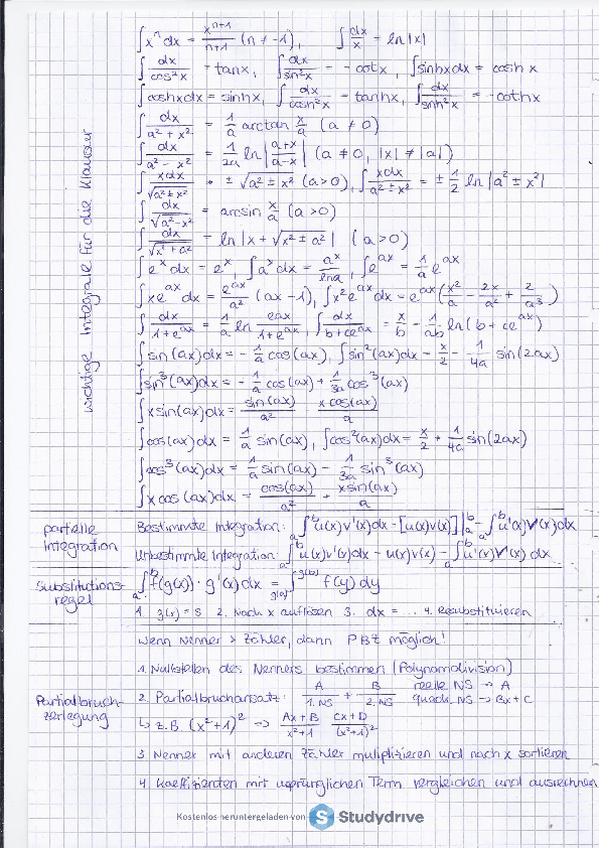 wichtige Integrale für die Klausur
∫xⁿdx = xⁿ⁺¹/(n+1) (n ≠ -1), ∫dx/x = ln|x|
∫dx/cos²x = tanx, ∫dx/sin²x = -cotx, ∫sinhxdx = coshx
∫coshxdx = sinhx, ∫dx/cosh²x = tanhx, ∫dx/sinh²x = -cothx
∫dx/(a²+x²) = 1/a arctan x/a (a ≠ 0)
∫dx/(a²-x²) = 1/2a ln|(a+x)/(a-x)| (a ≠ 0, |x| ≠ |a|)
∫xdx/√(a²±x²) = ±√(a²±x²) (a>0), ∫xdx/(a²±x²) = ± 1/2 ln|a²±x²|
∫dx/√(a²-x²) = arcsin x/a (a>0)
∫dx/√(x²±a²) = ln|x+√(x²±a²)| (a>0)
∫eˣdx = eˣ, ∫aˣdx = aˣ/lna, ∫e^ax = 1/a e^ax
∫xe^ax dx = e^ax/a² (ax-1), ∫x²e^ax dx = e^ax(x²/a - 2x/a² + 2/a³)
∫dx/(1+e^ax) = 1/a ln e^ax/(1+e^ax), ∫dx/(b+ce^ax) = x/b - 1/ab ln(b+ce^ax)
∫sin(ax)dx = -1/a cos(ax), ∫sin²(ax)dx = x/2 - 1/4a sin(2ax)
∫sin³(ax)dx = -1/a cos(ax) + 1/3a cos³(ax)
∫xsin(ax)dx = sin(ax)/a² - xcos(ax)/a
∫cos(ax)dx = 1/a sin(ax), ∫cos²(ax)dx = x/2 + 1/4a sin(2ax)
∫cos³(ax)dx = 1/a sin(ax) - 1/3a sin³(ax)
∫xcos(ax)dx = cos(ax)/a² + xsin(ax)/a
partielle Integration
Bestimmte Integration: a∫ᵇu(x)v'(x)dx = [u(x)v(x)]|ₐᵇ - a∫ᵇu'(x)v(x)dx
Unbestimmte Integration: a∫ᵇu(x)v'(x)dx = u(x)v(x) - ∫u'(x)v(x)dx
Substitutions-
regel
a∫ᵇf(g(x))·g'(x)dx = g(a)∫g(b) f(y)dy
1. g(x) = s 2. Nach x auflösen 3. dx = ... 4. Resubstituieren
Partialbruch-
zerlegung
Wenn Nenner > Zähler, dann PBZ möglich!
1. Nullstellen des Nenners bestimmen (Polynomdivision)
2. Partialbruchansatz: A/1. NS + B/2. NS reelle NS → A
quadr. NS → Bx+C
↳ z.B. (x²+1)² => (Ax+B)/(x²+1) (Cx+D)/(x²+1)²
3. Nenner mit anderen Zähler muliplizieren und nach x sortieren
4. Koeffizienten mit ursprünglichen Term vergleichen und ausrechnen
Kostenlos heruntergeladen von Studydrive